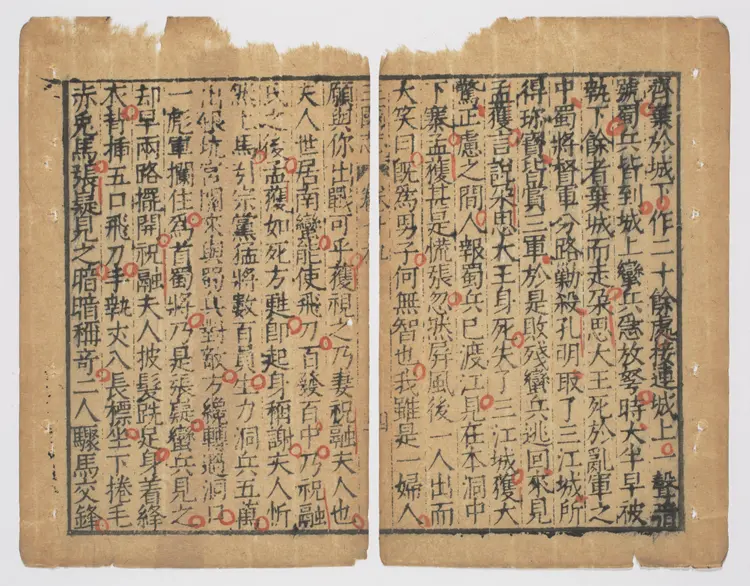 齊棄於城下作二十餘處接連城上一
號蜀兵皆到城上蠻兵急放弩時大半早被
執下餘者棄城而走朶思大王死於亂軍之
中蜀將督軍分路勦殺孔明取了三江城所
得珍寶皆賞三軍於是敗殘蠻兵逃回來見
孟獲言說朶思大王身死失了三江城獲大
驚正慮之間人報蜀兵已渡江見在本洞中
下寨孟獲甚是慌張忽然屏風後一人出而
大笑曰既為男子何無智也我雖是一婦人
三國志 卷十九 四
願與你出戰可乎獲視之乃妻祝融夫人也
夫人世居南蠻能使飛刀百發百中乃祝融
氏之後孟獲如死方甦即起身稱謝夫人忻
然上馬引宗黨猛將數百員生力洞兵五萬
出銀坑宮闕來與蜀兵對敵方纔轉過洞口
一彪軍攔住為首蜀將乃是張嶷蠻兵見之
却早兩路擺開祝融夫人披髮跣足身着絳
衣背插五口飛刀手執丈八長標坐下捲毛
赤兎馬張嶷見之暗暗稱奇二人驟馬交鋒